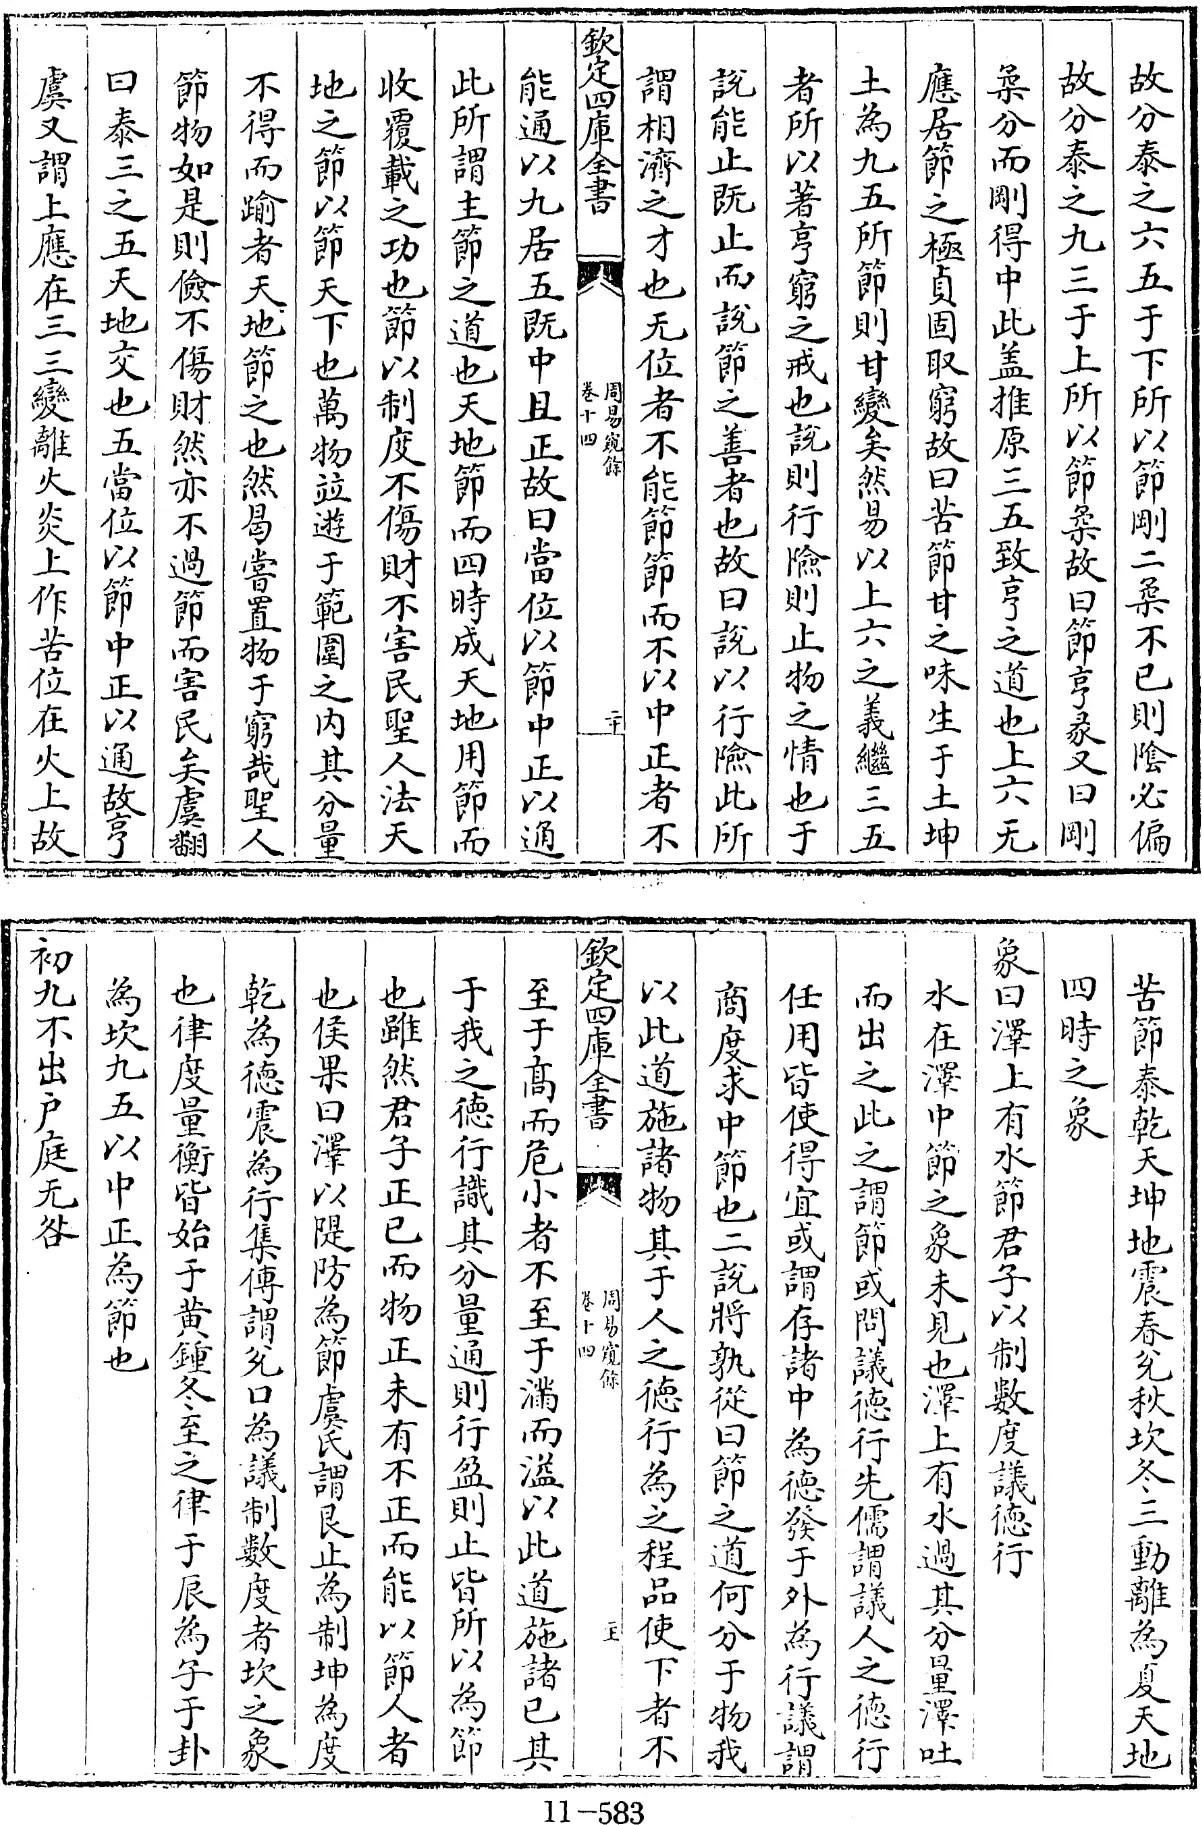 故分泰之六五于下所以節剛二柔不已則陰必偏
故分泰之九三于上所以節柔故曰節亨彖又曰剛
柔分而剛得中此盖推原三五致亨之道也上六无
應居節之極貞固取窮故曰苦節甘之味生于土坤
土為九五所節則甘變矣然易以上六之義繼三五
者所以著亨窮之戒也說則行險則止物之情也于
說能止既止而說節之善者也故曰說以行險此所
謂相濟之才也无位者不能節節而不以中正者不
欽定四庫全書
周易窺餘
卷十四
二十
能通以九居五既中且正故曰當位以節中正以通
此所謂主節之道也天地節而四時成天地用節而
收覆載之功也節以制度不傷財不害民聖人法天
地之節以節天下也萬物竝遊于範圍之内其分量
不得而踰者天地節之也然曷嘗置物于窮哉聖人
節物如是則儉不傷財然亦不過節而害民矣虞翻
曰泰三之五天地交也五當位以節中正以通故亨
虞又謂上應在三三變離火炎上作苦位在火上故
苦節泰乾天坤地震春兊秋坎冬三動離為夏天地
四時之象
象曰澤上有水節君子以制數度議徳行
水在澤中節之象未見也澤上有水過其分量澤吐
而出之此之謂節或問議徳行先儒謂議人之徳行
任用皆使得宜或謂存諸中為徳發于外為行議謂
商度求中節也二說將孰從曰節之道何分于物我
以此道施諸物其于人之徳行為之程品使下者不
欽定四庫全書
周易窺餘
卷十四
至于髙而危小者不至于滿而溢以此道施諸已其
于我之徳行識其分量通則行盈則止皆所以為節
也雖然君子正已而物正未有不正而能以節人者
也侯果曰澤以隄防為節虞氏謂艮止為制坤為度
乾為徳震為行集傳謂兊口為議制數度者坎之象
也律度量衡皆始于黄鍾冬至之律于辰為子于卦
為坎九五以中正為節也
初九不出户庭无咎
11-583